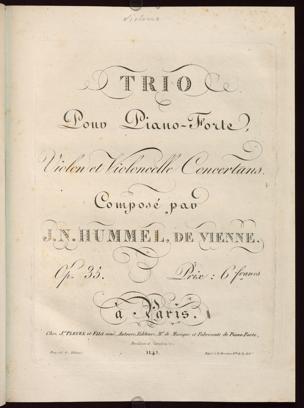 TRIO
Pour Piano-Forte,
Violon et Violoncelle Concertans.
Composé par
J. N. HUMMEL, DE VIENNE.
Op. 35. Prix: 6 francs
à Paris.
Chez Ce. PLEYEL et Fils aîné, Auteurs, Editeurs, Md. de Musique et Fabricants de Piano-Forte,
Boulevard
1142.
Propriété de l'Editeur.